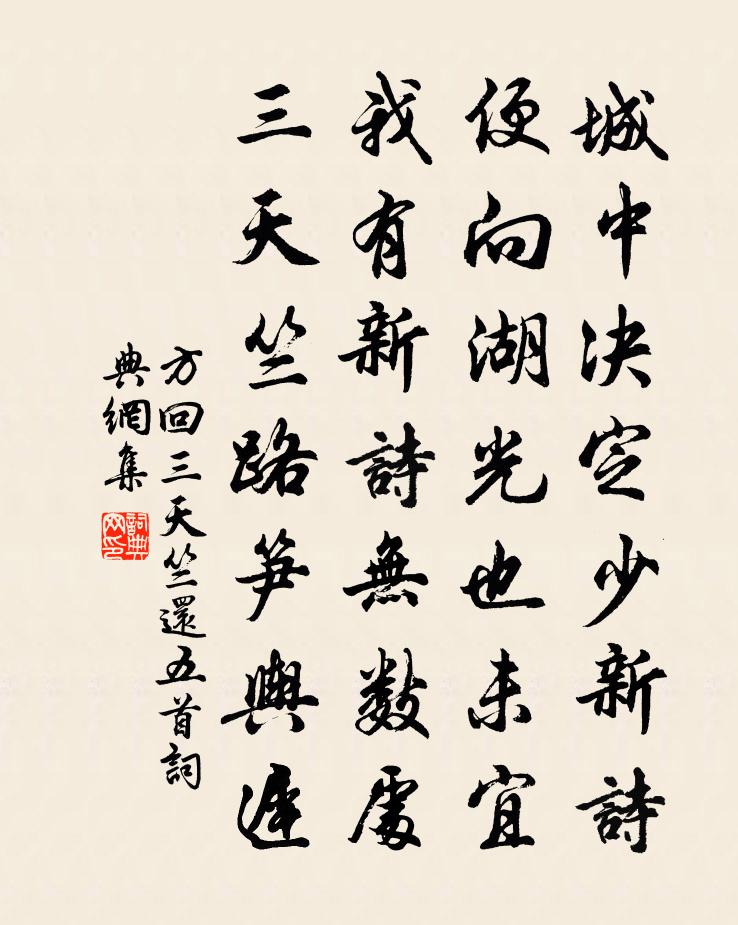 城中决定少新詩
便向湖光也未宜
我有新詩無數處
三天竺路笋輿遲
方回三天竺還五首詞
典網集
詞典网印